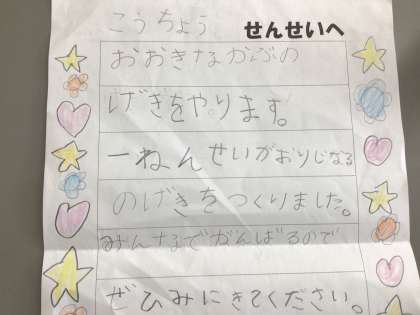 こうちょう せんせいへ
おおきなかぶの
げきをやります。
一ねんせいがおりじなる
のげきをつくりました。
みんなでがんばるので
ぜひみにきてください。